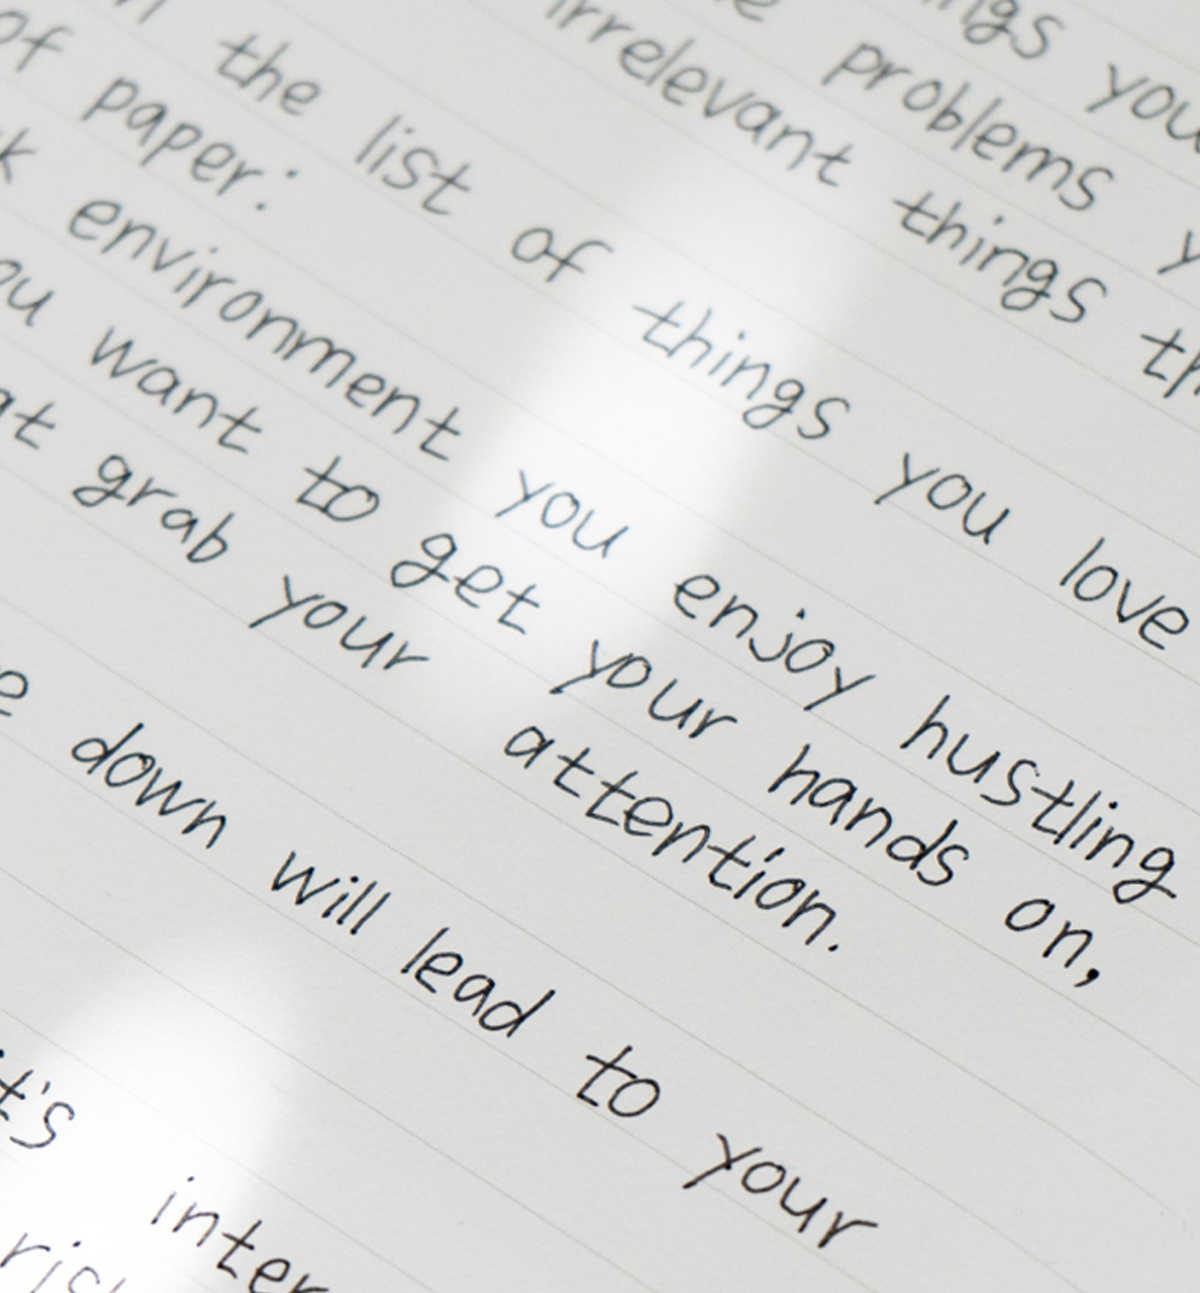 you
problems
irrelevant things
the list of things you love
of paper:
environment you enjoy hustling
want to get your hands on,
grab your attention.
down will lead to your